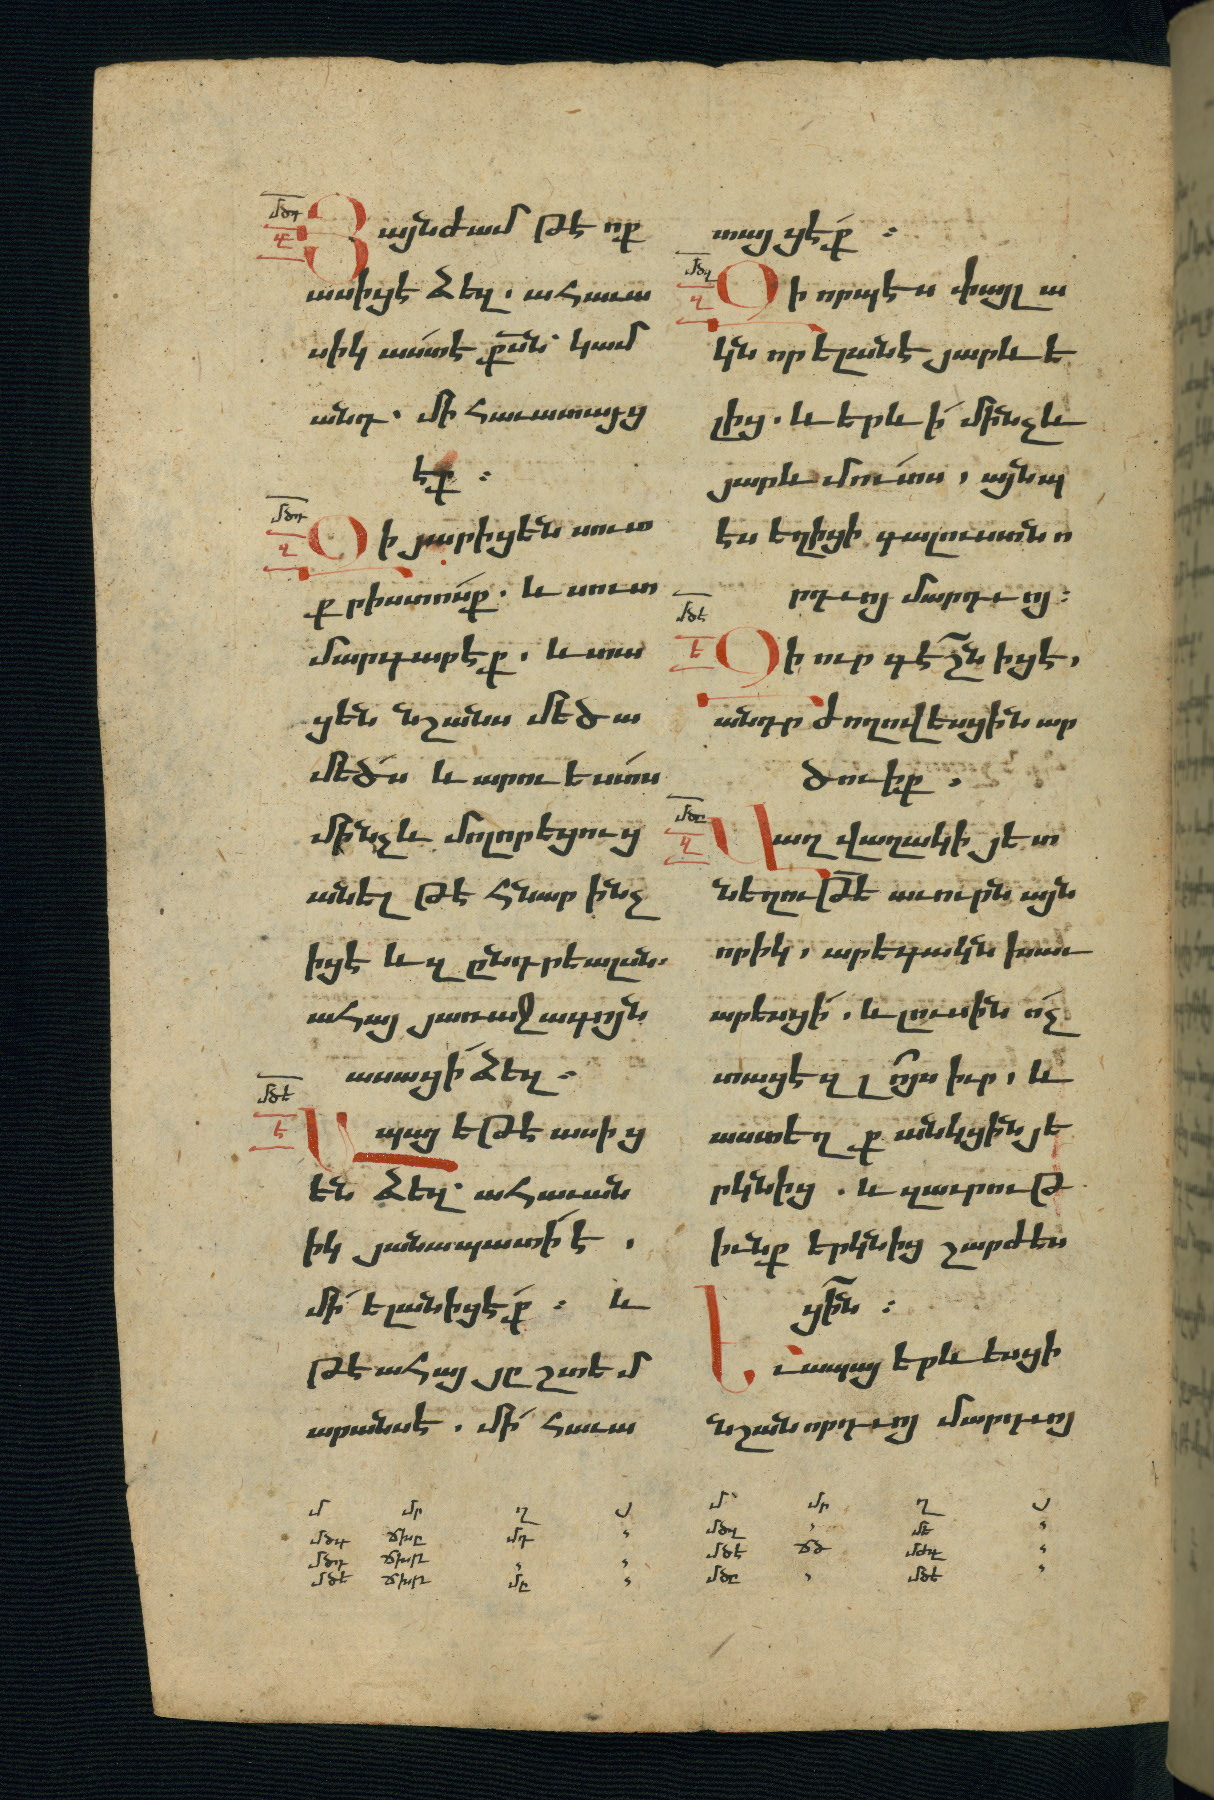 Յայնժամ թէ ոք
ասիցէ ձեզ. ահաւա
սիկ աստէ քսն՝ կամ
անդ. մի հաւատայց
էք :
Զի յարիցեն սուտ
քրիստոսք. և սուտ
մարգարէք. և տա
ցեն նշանս մեծա
մեծս և արուեստս
մինչև մոլորեցուց
անել թէ հնար ինչ
իցէ և զընտրեալսն.
ահայ յառաջագոյն
ասացի ձեզ.
Ապայ եթէ ասից
են ձեզ՝ ահաւան
իկ յանապատի է.
մի ելանիցէք : և
թէ ահայ յըշտեմ
արանսէ. մի հաւա
տայցէք :
Զի որպէս փայլա
կն որ ելանէ յարևե
լից. և երևի մինչև
յարևմուտս, այնպ
էս եղիցի գալուստն ո
րդւոյ մարդւոյ:
Զի ուր գէշն իցէ,
անդր ժողովեսցին ար
ծուիք.
Վաղվաղակի յետ
նեղութե աւուրն այն
որիկ, արեգակն խաւ
արեսցի. և լուսին ոչ
տացէ զլոյս իւր, և
աստեղք անկցին յե
րկնից. և զաւրութ
իւնք երկնից շարժես
ցին :
Եւ ապայ երևեսցի
նշան որդւոյ մարդւոյ
մծդ
մծդ
մծե
մծզ
մծէ
մծը
մ մր ղ յ